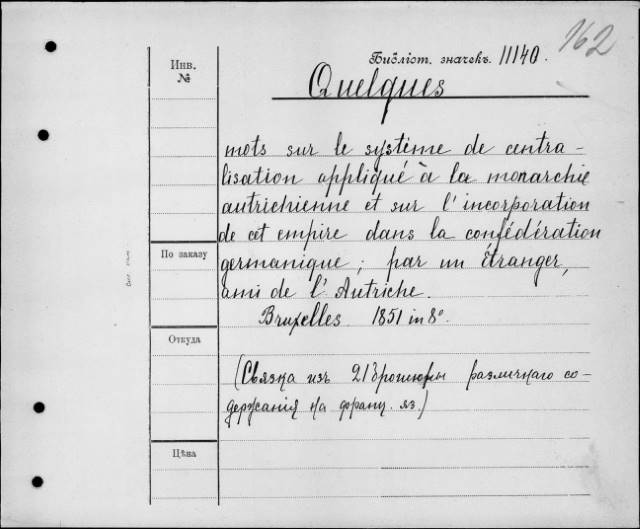 162
Инв.
№
Библіот. значекъ. 11140.
Quelques
mots sur le système de centra-
lisation appliqué à la monarchie
autrichienne et sur l'incorporation
de cet empire dans la confédération
germanique; par un Étranger,
ami de l'Autriche.
Bruxelles 1851 in 8°.
По заказу
Откуда
(Связка изъ 21 брошюры различнаго со-
держанія на франц. яз.)
Цѣна